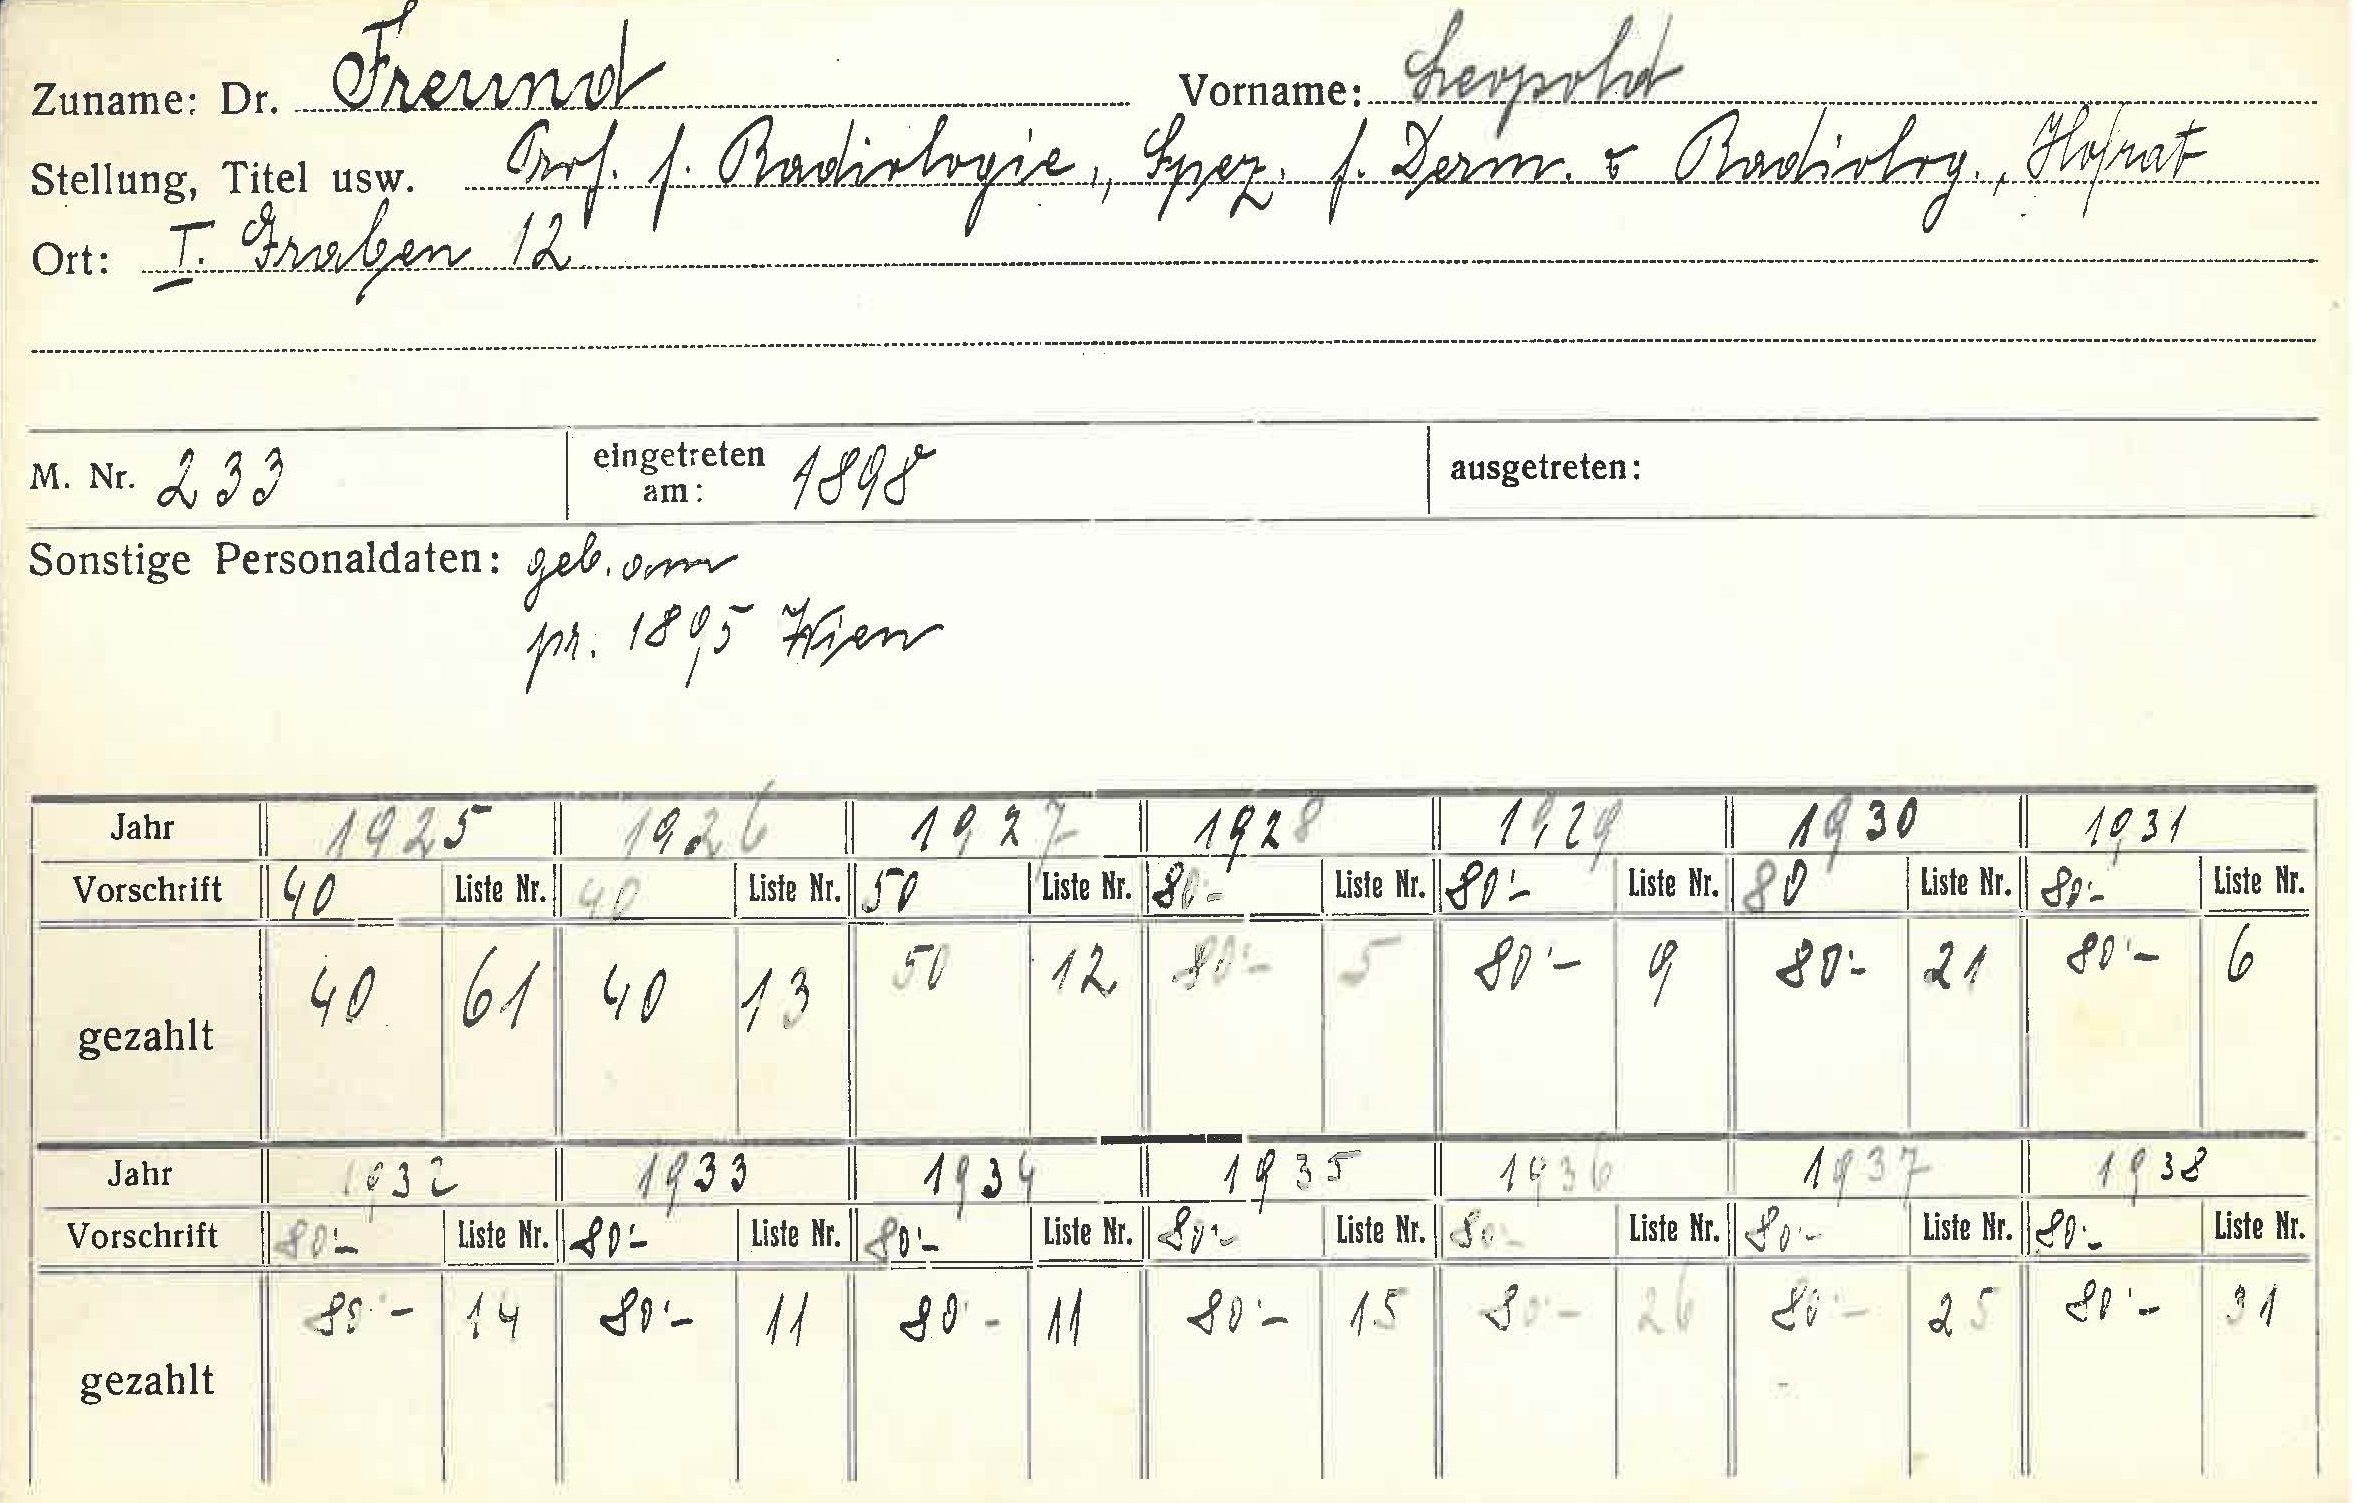 Zuname: Dr. Freund Vorname: Leopold
Stellung, Titel usw. Prof. f. Radiologie, Spez. f. Derm. u Radiolog., Hofrat
Ort: I. Graben 12
M. Nr. 233 eingetreten am: 1898 ausgetreten:
Sonstige Personaldaten: geb. am
pr. 1895 Wien
Jahr 1925 1926 1927 1928 1929 1930 1931
Vorschrift 40 Liste Nr. 40 Liste Nr. 50 Liste Nr. 80·- Liste Nr. 80·- Liste Nr. 80 Liste Nr. 80·- Liste Nr.
gezahlt 40 61 40 13 50 12 80·- 5 80·- 9 80·- 21 80·- 6
Jahr 1932 1933 1934 1935 1936 1937 1938
Vorschrift 80·- Liste Nr. 80·- Liste Nr. 80·- Liste Nr. 80·- Liste Nr. 80·- Liste Nr. 80·- Liste Nr. 80·- Liste Nr.
gezahlt 80·- 14 80·- 11 80·- 11 80·- 15 80·- 26 80·- 25 80·- 31